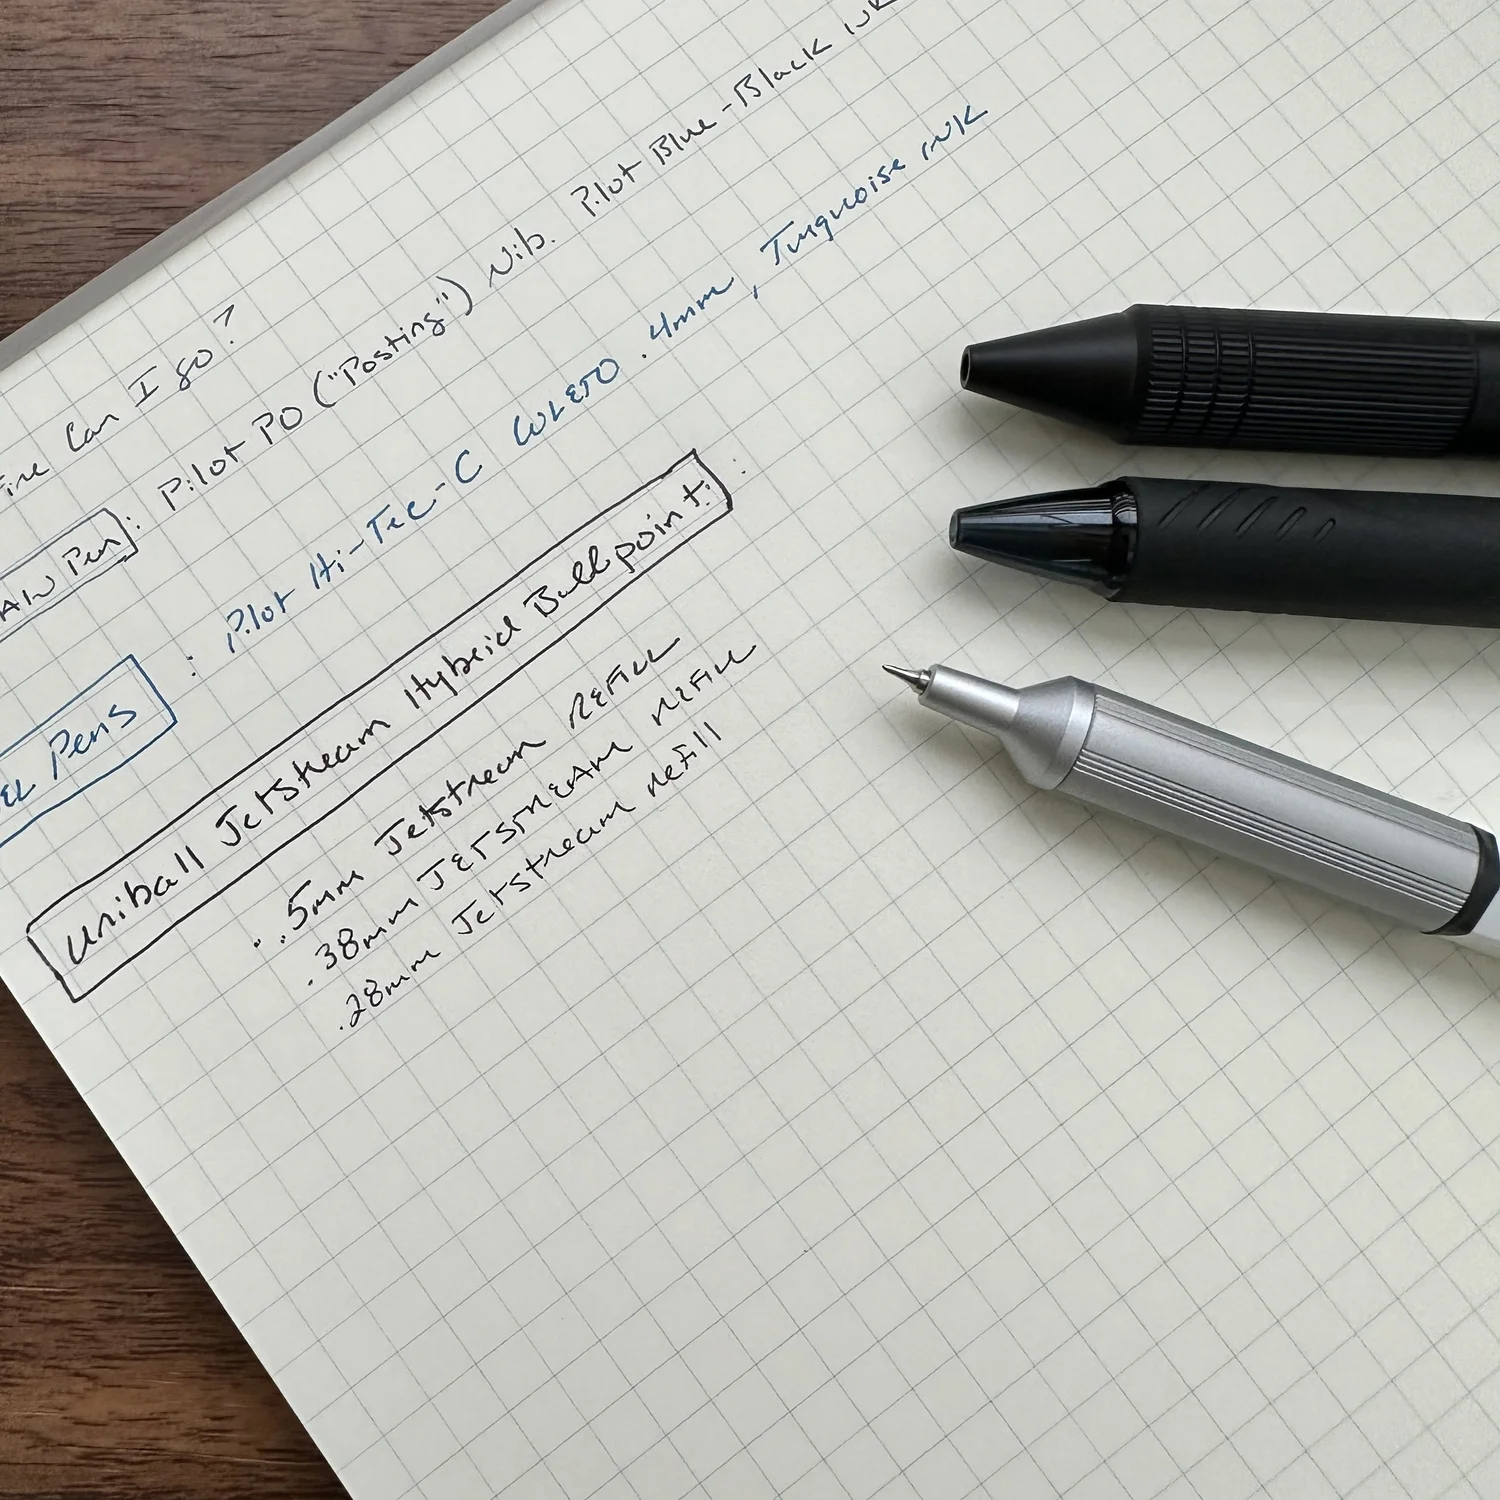 Fine Can I go?
Pen : Pilot PO ("Posting") Nib. Pilot Blue-Black ink
Pens : Pilot Hi-Tec-C COLETO .4mm, Turquoise ink
uniball Jetstream Hybrid Ballpoint:
.5mm Jetstream REFILL
.38mm JETSTREAM REFILL
.28mm Jetstream refill